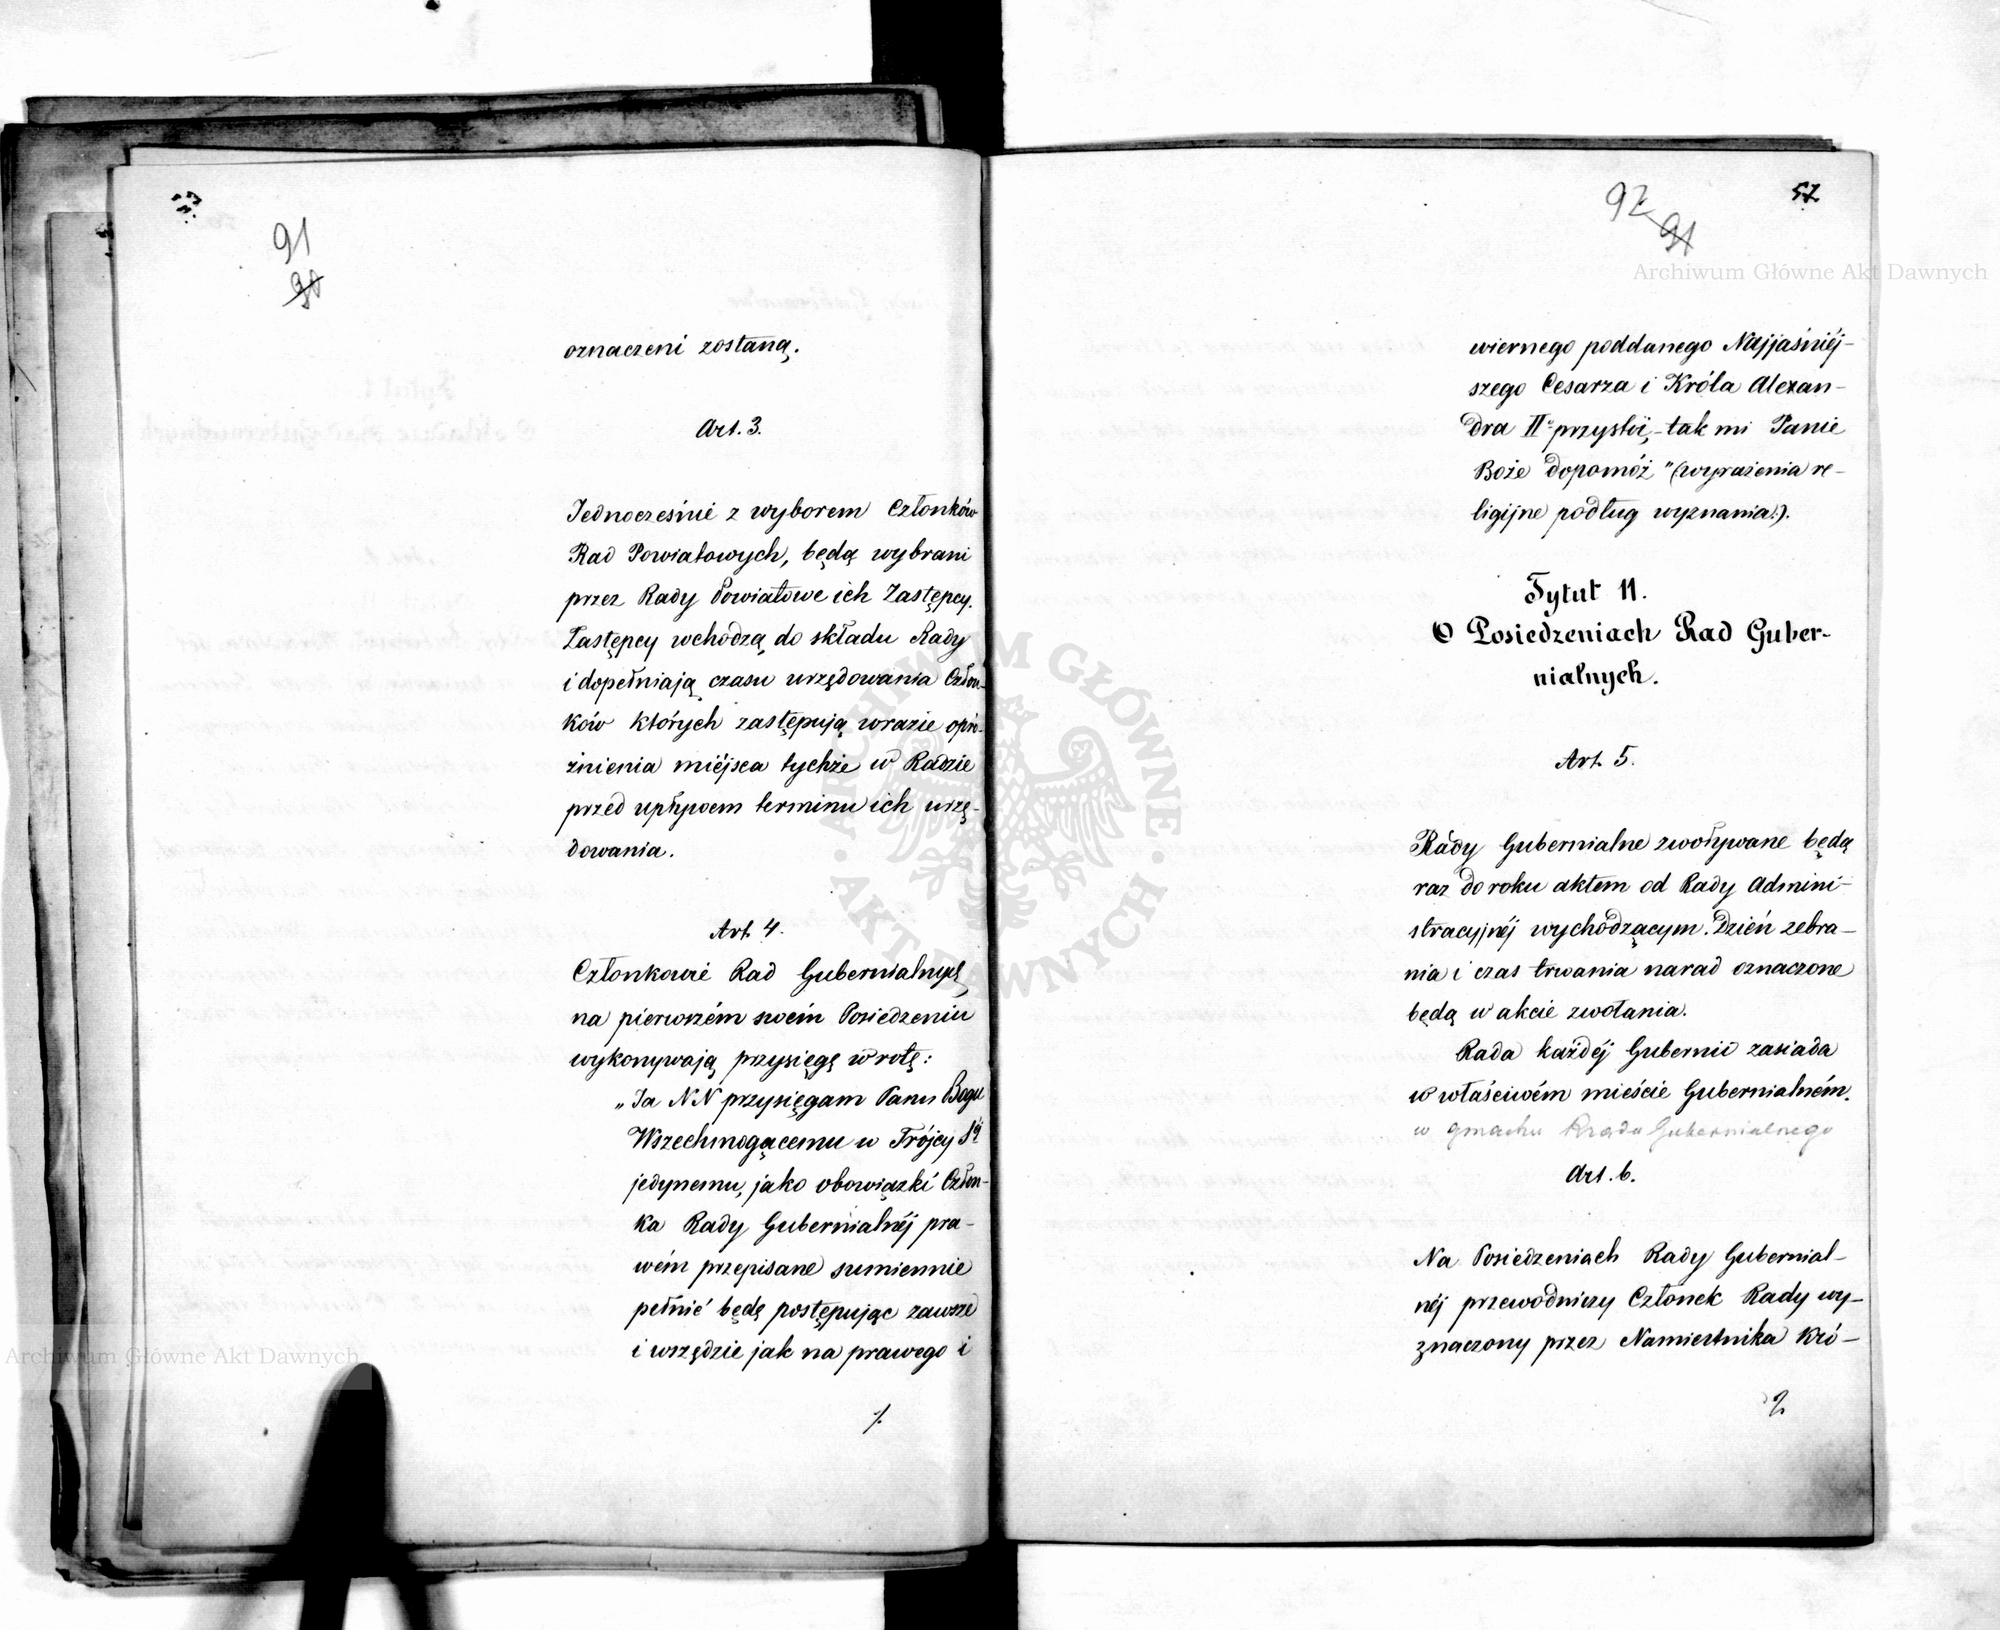 91
90
oznaczeni zostaną.
Art. 3.
Jednocześnie z wyborem Członków
Rad Powiatowych, będą wybrani
przez Rady Powiatowe ich Zastępcy.
Zastępcy wchodzą do składu Rady
i dopełniają czasu urzędowania Człon-
ków których zastępują w razie opró-
żnienia miéjsca tychże w Radzie
przed upływem terminu ich urzę-
dowania.
Art. 4.
Członkowie Rad Gubernialnych
na pierwszém swém Posiedzeniu
wykonywają przysięgę w rotę:
„Ja NN przysięgam Panu Bogu
Wszechmogącemu w Trójcy Śéj
jedynemu, jako obowiązki Człon-
ka Rady Gubernialnéj pra-
wém przepisane sumiennie
pełnić będę postępując zawsze
i wszędzie jak na prawego i
57
92
91
wiernego poddanego Najjaśniéj-
szego Cesarza i Króla Alexan-
dra IIo przystoi, - tak mi Panie
Boże dopomóż" (wyrażenia re-
ligijne podług wyznania).
Tytuł II.
O Posiedzeniach Rad Guber-
nialnych.
Art. 5.
Rady Gubernialne zwoływane będą
raz do roku aktem od Rady Admini-
stracyjnéj wychodzącym. Dzień zebra-
nia i czas trwania narad oznaczone
będą w akcie zwołania.
Rada każdéj Gubernii zasiada
w właściwém mieście Gubernialném.
w gmachu Rządu Gubernialnego
Art. 6.
Na Posiedzeniach Rady Gubernial-
néj przewodniczy Członek Rady wy-
znaczony przez Namiestnika Kró-
2
Archiwum Główne Akt Dawnych
Archiwum Główne Akt Dawnych
ARCHIWUM GŁÓWNE · AKT DAWNYCH ·